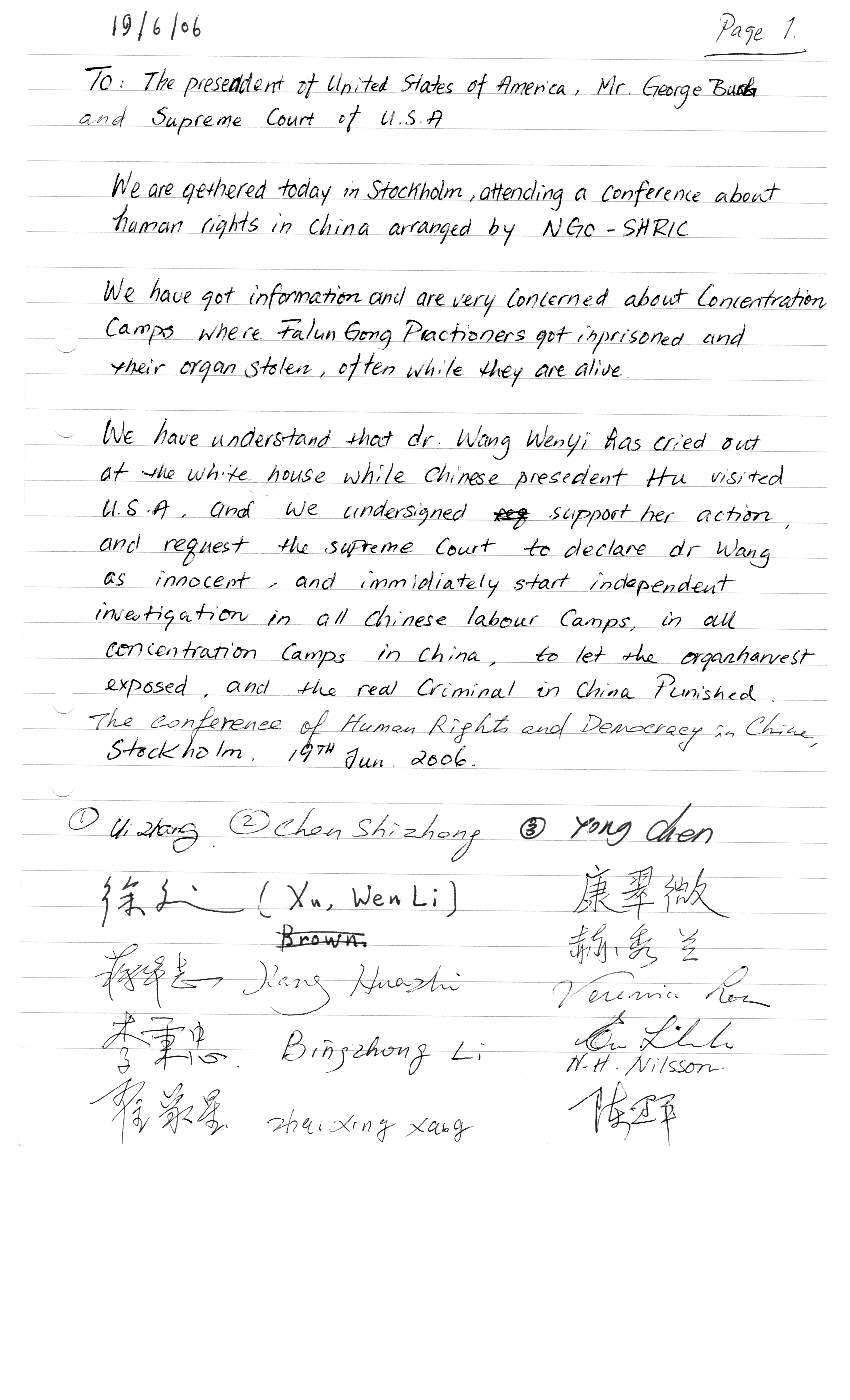 19/6/06
Page 1.
To: The presendent of United States of America, Mr. George Bush
and Supreme Court of U.S.A
We are gethered today in Stockholm, attending a conference about
human rights in China arranged by NGO - SHRIC
We have got information and are very concerned about Concentration
Camps where Falun Gong Practioners got inprisoned and
their organ stolen, often while they are alive.
We have understand that dr. Wang Wenyi has cried out
at the white house while Chinese presedent Hu visited
U.S.A, and we undersigned support her action,
and request the supreme Court to declare dr Wang
as innocent, and immidiately start independent
investigation in all Chinese labour Camps, in all
concentration Camps in China, to let the organharvest
exposed, and the real Criminal in China Punished.
The conference of Human Rights and Democracy in China,
Stockholm. 19TH Jun. 2006.
① Zhang ② Chen Shizhong ③ Yong Chen
徐文立 (Xu, Wen Li) 康翠微
Brown.
郝秀兰
Jiang Huazhi
李重忠 Bingzhong Li
N.H. Nilsson
Zhai Xing Xang